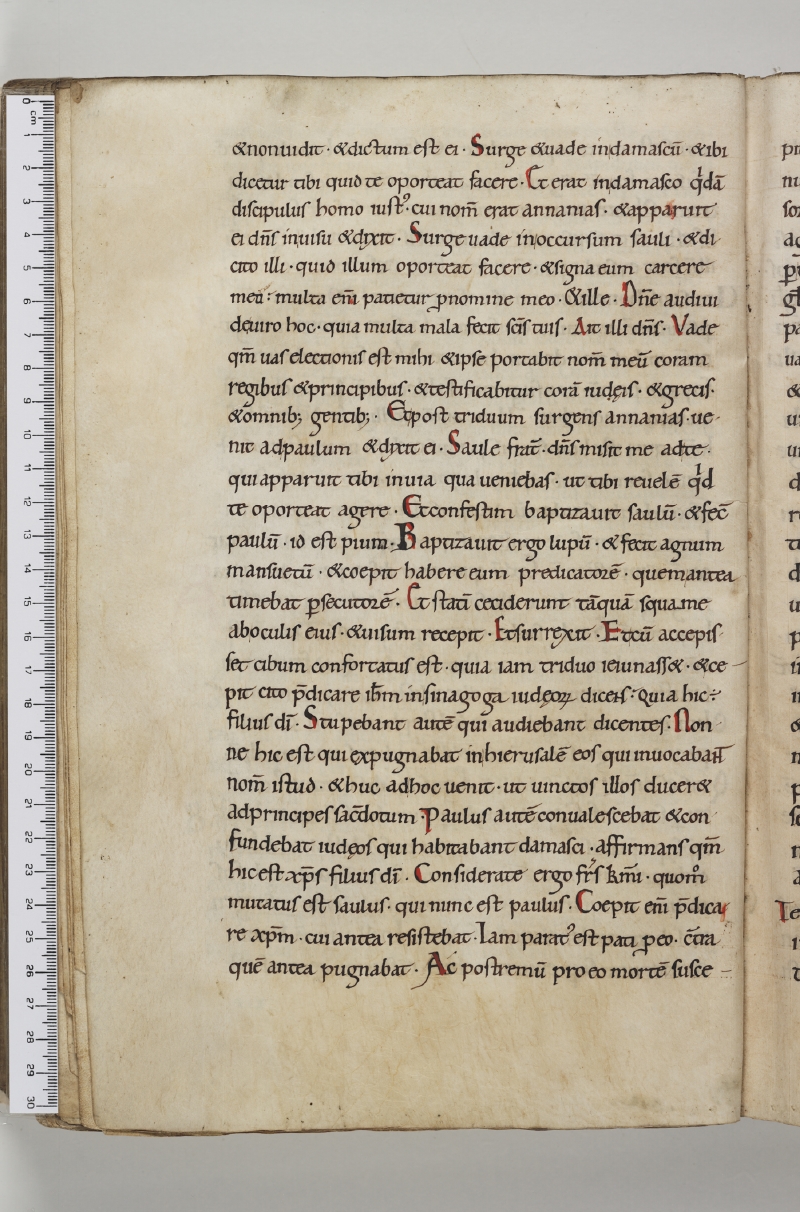 &nonuidit · &dictum est ei · Surge &uade indamascū · &ibi
dicetur tibi quid te oporteat facere · Et erat indamasco qdā
discipulus homo iust᾿ · cui nom̄ erat annanias · &apparuit
ei dn̄s inuisu &dixit · Surge uade inoccursum sauli · &di
cito illi · quid illum oporteat facere · &signa eum carcere
meū : multa em̄ patietur ꝓnomine meo · &ille · Dn̄e audiui
deuiro hoc · quia multa mala fecit sc̄is tuis · Ait illi dn̄s · Vade
qm̄ uas electionis est mihi &ipse portabit nom̄ meū coram
regibus &principibus · &testificabitur corā iudęis · &grecis ·
&omnib; gentib; · Et post triduum surgens annanias · ue
nit adpaulum &dixit ei · Saule frat̄ · dn̄s misit me adte ·
qui apparuit tibi inuia qua ueniebas · ut tibi reuelē qd
te oporteat agere · Et confestim baptizauit saulū · &fec̄
paulū · id est pium · Baptizauit ergo lupū · &fecit agnum
mansuetū · &coepit habere eum predicatorē · quemantea
timebat ꝑsecutorē · Et statī ceciderunt tāquā squame
aboculis eius · &uisum recepit · Etsurrexit · Etcū accepis
set cibum confortatus est · quia iam triduo ieiunass& · &ce
pit cito p̄dicare ih̄m insinagoga iudęoꝝ dicens : Quia hic ÷
filius dī · Stupebant autē qui audiebant dicentes · Non
ne hic est qui expugnabat inhierusalē eos qui inuocabant
nom̄ istud · &huc adhoc uenit · ut uinctos illos ducer&
adprincipes sac̄dotum · Paulus autē conualescebat &con
fundebat iudęos qui habitabant damasci · affirmans qm̄
hic est xp̄s filius dī · Considerate ergo fr̄s km̄i · quom̊
mutatus est saulus · qui nunc est paulus · Coepit em̄ p̄dica
re xp̄m · cui antea resistebat · Iam parat᾿ est pati ꝓeo · c̄tra
quē antea pugnabat · Ac postremū pro eo mortē susce